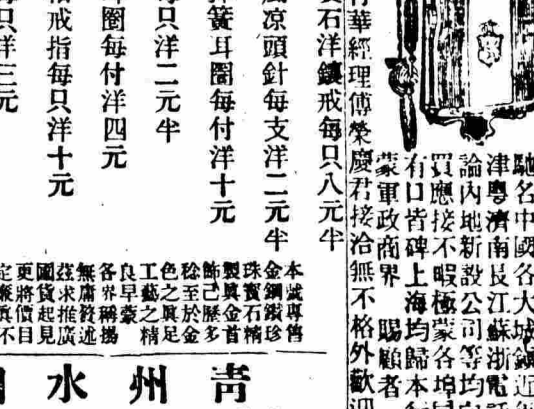 馳名中國各大城鎮近
津粵濟南長江蘇浙電話
論內地新設公司等均
買應接不暇極蒙各埠
有口皆碑上海均歸本
蒙軍政商界 賜顧者
華經理傅榮慶君接洽無不格外歡迎
石洋鑲戒每只八元半
凉頭針每支洋二元半
簧耳圈每付洋十元
只洋二元半
圈每付洋四元
戒指每只洋十元
只洋三元
本號專售
金鋼鑽珍
珠寶石精
製眞金首
飾已歷多
稔至於金
色之眞足
工藝之精
良早蒙
各界稱揚
無庸贅述
茲求推廣
國貨起見
更將價目
青州水